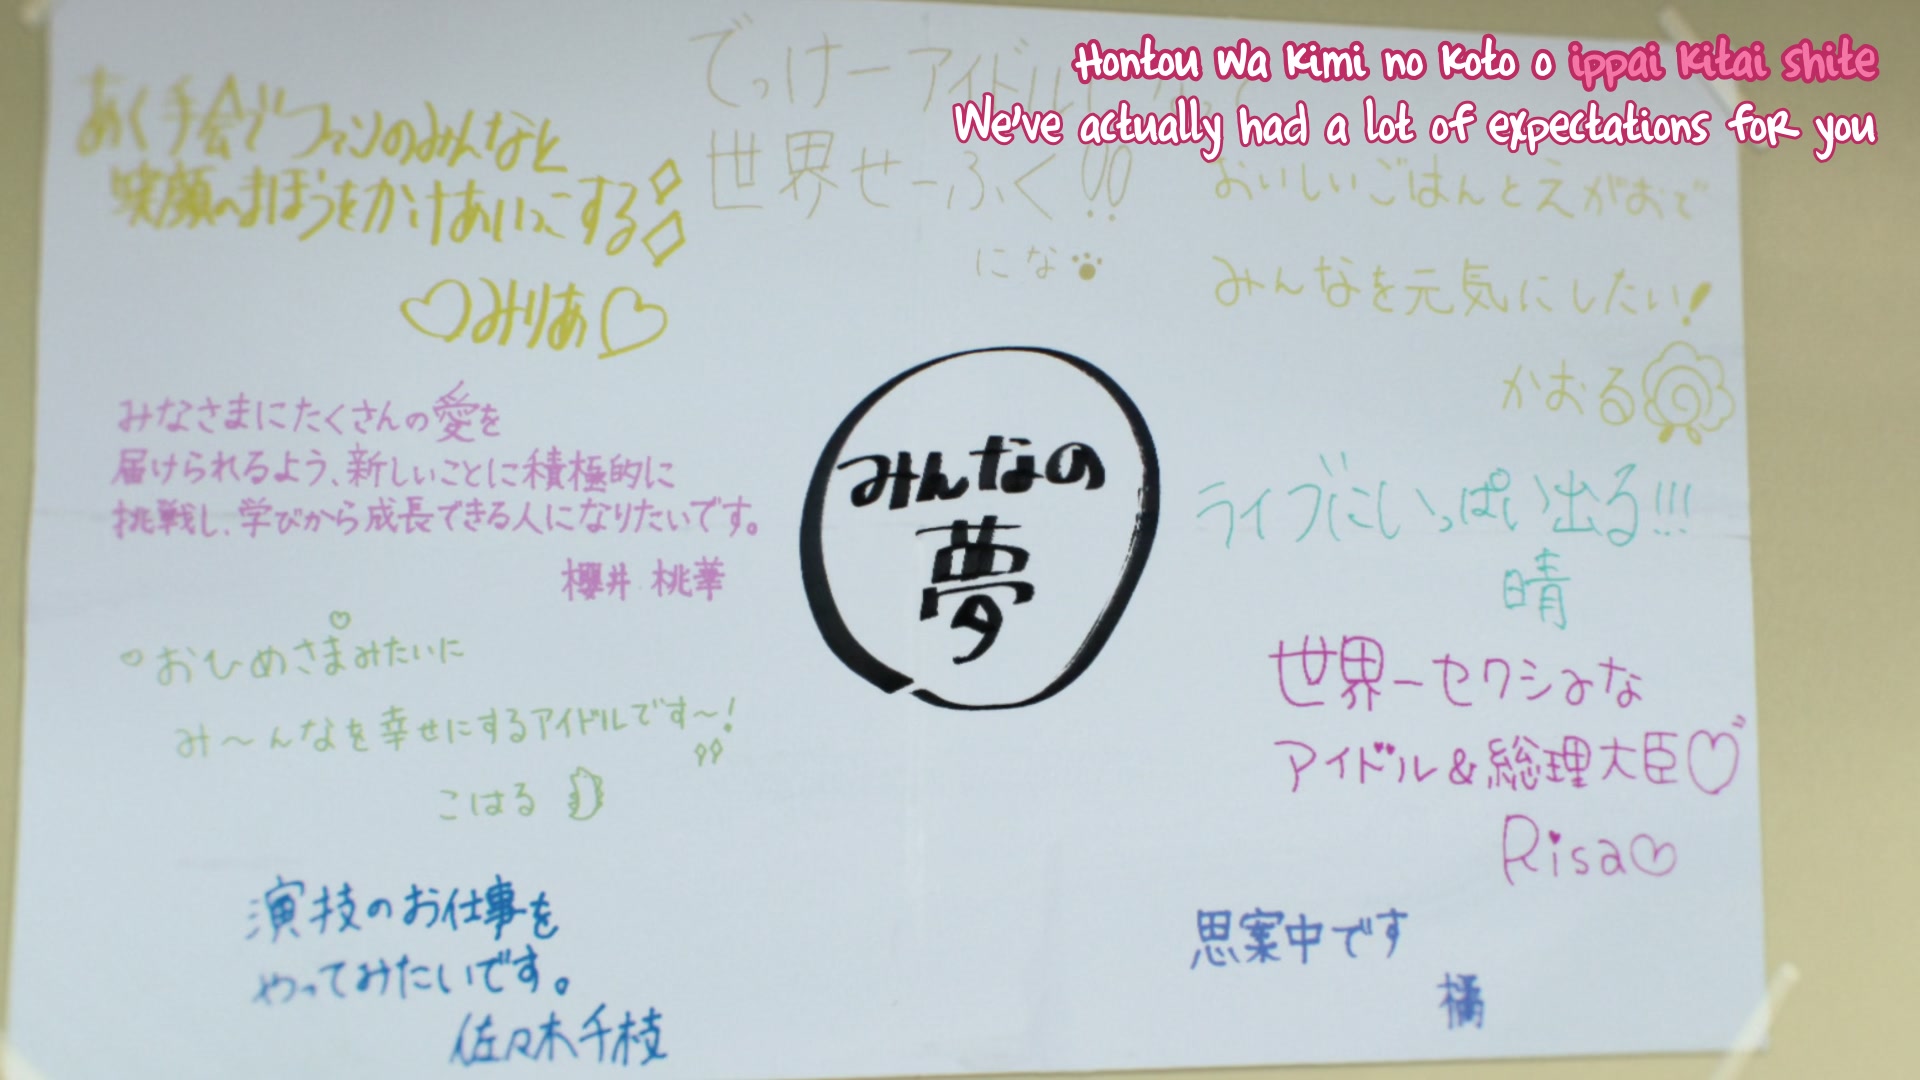 Hontou wa kimi no koto o ippai kitai shite
We've actually had a lot of expectations for you
でっけーアイドルになって
世界せーふく!!
にな
あく手会でファンのみんなと
笑顔のまほうをかけあいっこする
♡みりあ♡
おいしいごはんとえがおで
みんなを元気にしたい!
かおる
みなさまにたくさんの愛を
届けられるよう、新しいことに積極的に
挑戦し、学びから成長できる人になりたいです。
櫻井 桃華
みんなの
夢
ライブにいっぱい出る!!!
晴
おひめさまみたいに
み〜んなを幸せにするアイドルです〜!
こはる
世界一セクシみな
アイドル&総理大臣♡
Risa♡
演技のお仕事を
やってみたいです。
佐々木千枝
思案中です
橘